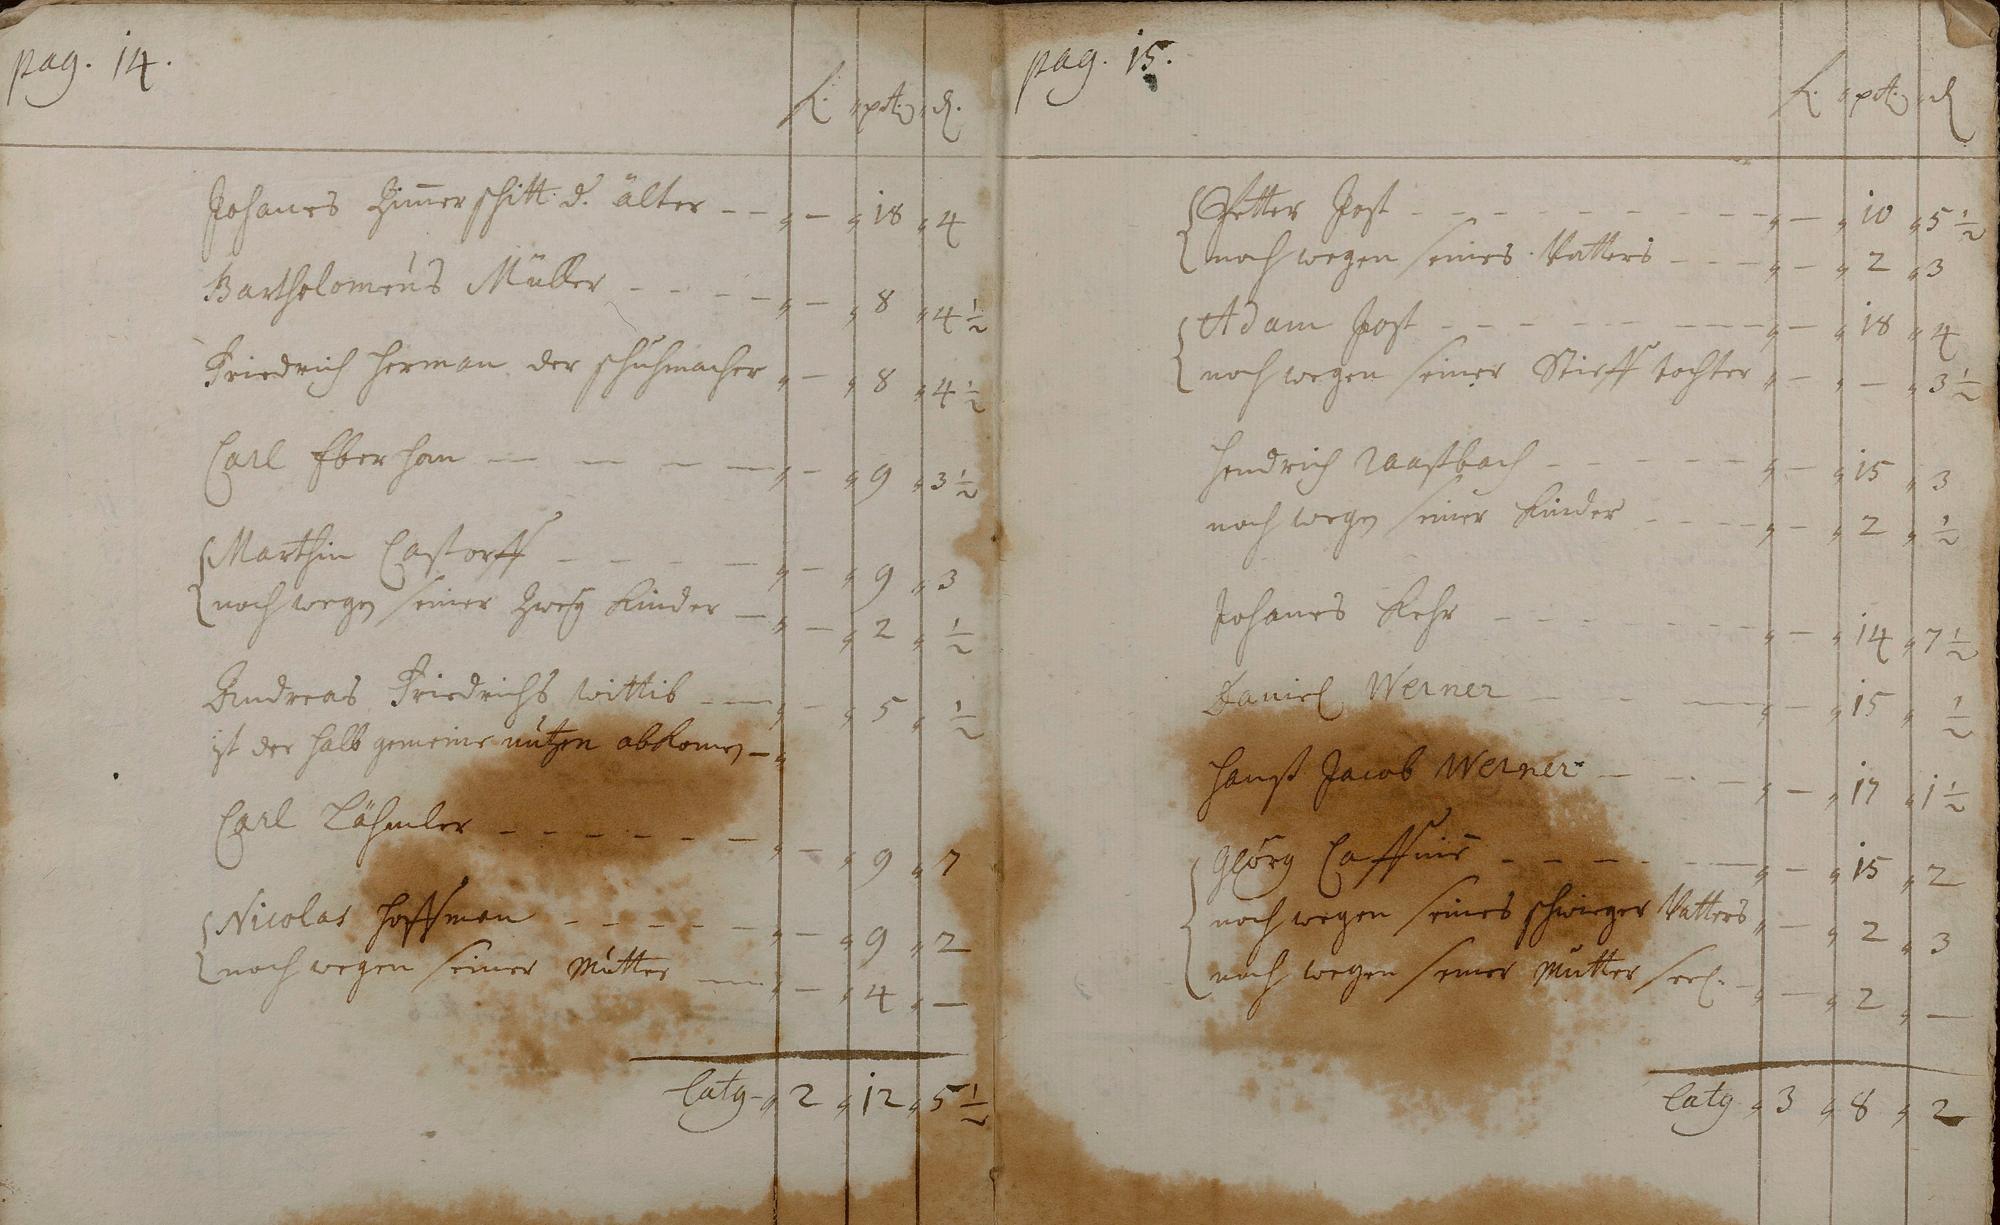 pag. 14.
fl. " pat. " d.
Johanes Zimerschitt d. älter -- " - " 18 " 4
Bartholomeus Müller ---- " - " 8 " 4 1/2
Friedrich Herman der schuhmacher " - " 8 " 4 1/2
Carl Eberhan ---- " - " 9 " 3 1/2
Marthin Castorff ---- " - " 9 " 3
noch wegen seiner Zwey Kinder - " - " 2 " 1/2
Andreas Friedrichs wittib --- " - " 5 " 1/2
ist der halb gemeine nutzen abkomen - "
Carl Lähmler ------ " - " 9 " 7
Nicolas Hoffman ----- " - " 9 " 2
noch wegen seiner Mutter --- " - " 4 " -
Latg - " 2 " 12 " 5 1/2
pag. 15.
fl. " pat. " d
Petter Jost -------- " - " 10 " 5 1/2
noch wegen seines Vatters --- " - " 2 " 3
Adam Jost -------- " - " 18 " 4
noch wegen seiner Stieff tochter " - " - " 3 1/2
Hendrich Raaßbach ----- " - " 15 " 3
noch wegen seiner Kinder ---- " - " 2 " 1/2
Johanes Kehr ------ " - " 14 " 7 1/2
Daniel Werner ---- " - " 15 " 1/2
Hanß Jacob Werner ---- " - " 17 " 1 1/2
Geörg ---- " - " 15 " 2
noch wegen seines schwieger Vatters " - " 2 " 3
noch wegen seiner Mutter seel. - " - " 2 " -
Latg " 3 " 8 " 2